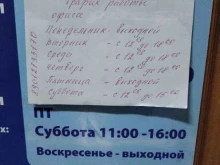 График работы
офиса
Понедельник - выходной
Вторник - с 12 00 до 18 00
Среда - с 12 00 до 18 00
Четверг - с 12 00 до 18 00
Пятница - выходной
Суббота - с 12 00 до
ПТ
Суббота 11:00 -16:00
Воскресенье - выходной